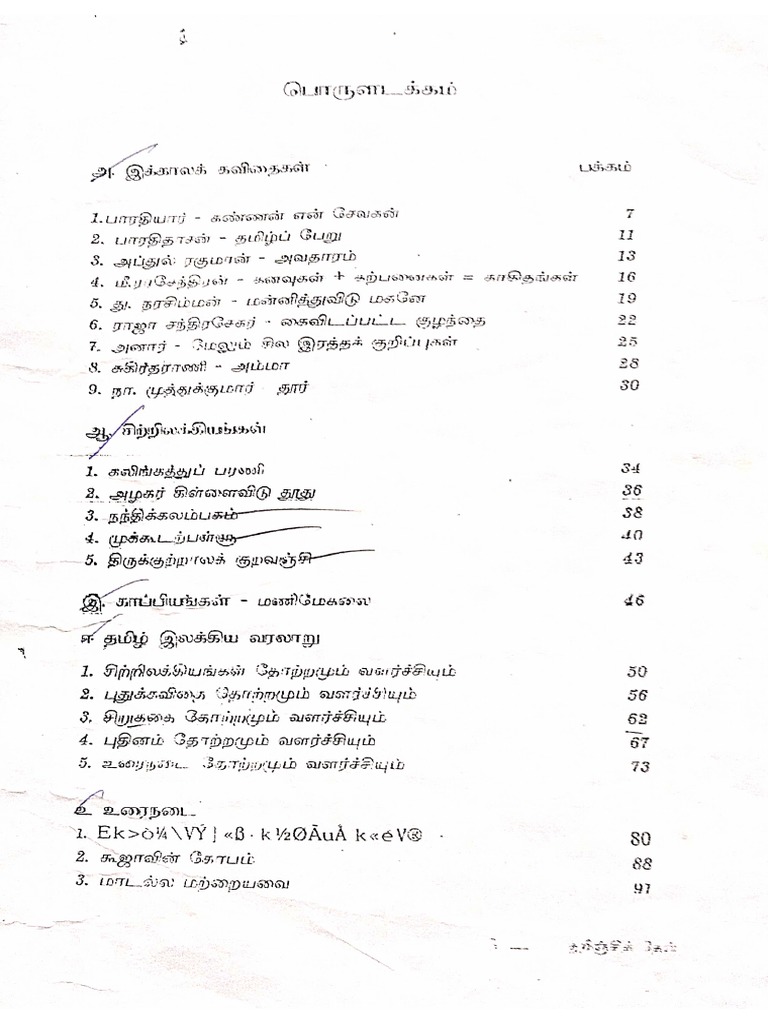 பொருளடக்கம்
அ. இக்காலக் கவிதைகள் பக்கம்
1. பாரதியார் - கண்ணன் என் சேவகன் 7
2. பாரதிதாசன் - தமிழ்ப் பேறு 11
3. அப்துல் ரகுமான் - அவதாரம் 13
4. மீ.ராசேந்திரன் - கனவுகள் + கற்பனைகள் = காகிதங்கள் 16
5. து. நரசிம்மன் - மன்னித்துவிடு மகனே 19
6. ராஜா சந்திரசேகர் - கைவிடப்பட்ட குழந்தை 22
7. அனார் - மேலும் சில இரத்தக் குறிப்புகள் 25
8. சுகிர்தராணி - அம்மா 28
9. நா. முத்துக்குமார் தூர் 30
ஆ. சிற்றிலக்கியங்கள்
1. கலிங்கத்துப் பரணி 34
2. அழகர் கிள்ளைவிடு தூது 36
3. நந்திக்கலம்பகம் 38
4. முக்கூடற்பள்ளு 40
5. திருக்குற்றாலக் குறவஞ்சி 43
இ. காப்பியங்கள் - மணிமேகலை 46
ஈ தமிழ் இலக்கிய வரலாறு
1. சிற்றிலக்கியங்கள் தோற்றமும் வளர்ச்சியும் 50
2. புதுக்கவிதை தோற்றமும் வளர்ச்சியும் 56
3. சிறுகதை தோற்றமும் வளர்ச்சியும் 62
4. புதினம் தோற்றமும் வளர்ச்சியும் 67
5. உரைநடை தோற்றமும் வளர்ச்சியும் 73
உ உரைநடை
1. Ek>ò¼\VÝ¦«ß· k½ØÃuÅ k«éV® 80
2. கூஜாவின் கோபம் 88
3. மாடல்ல மற்றையவை 91